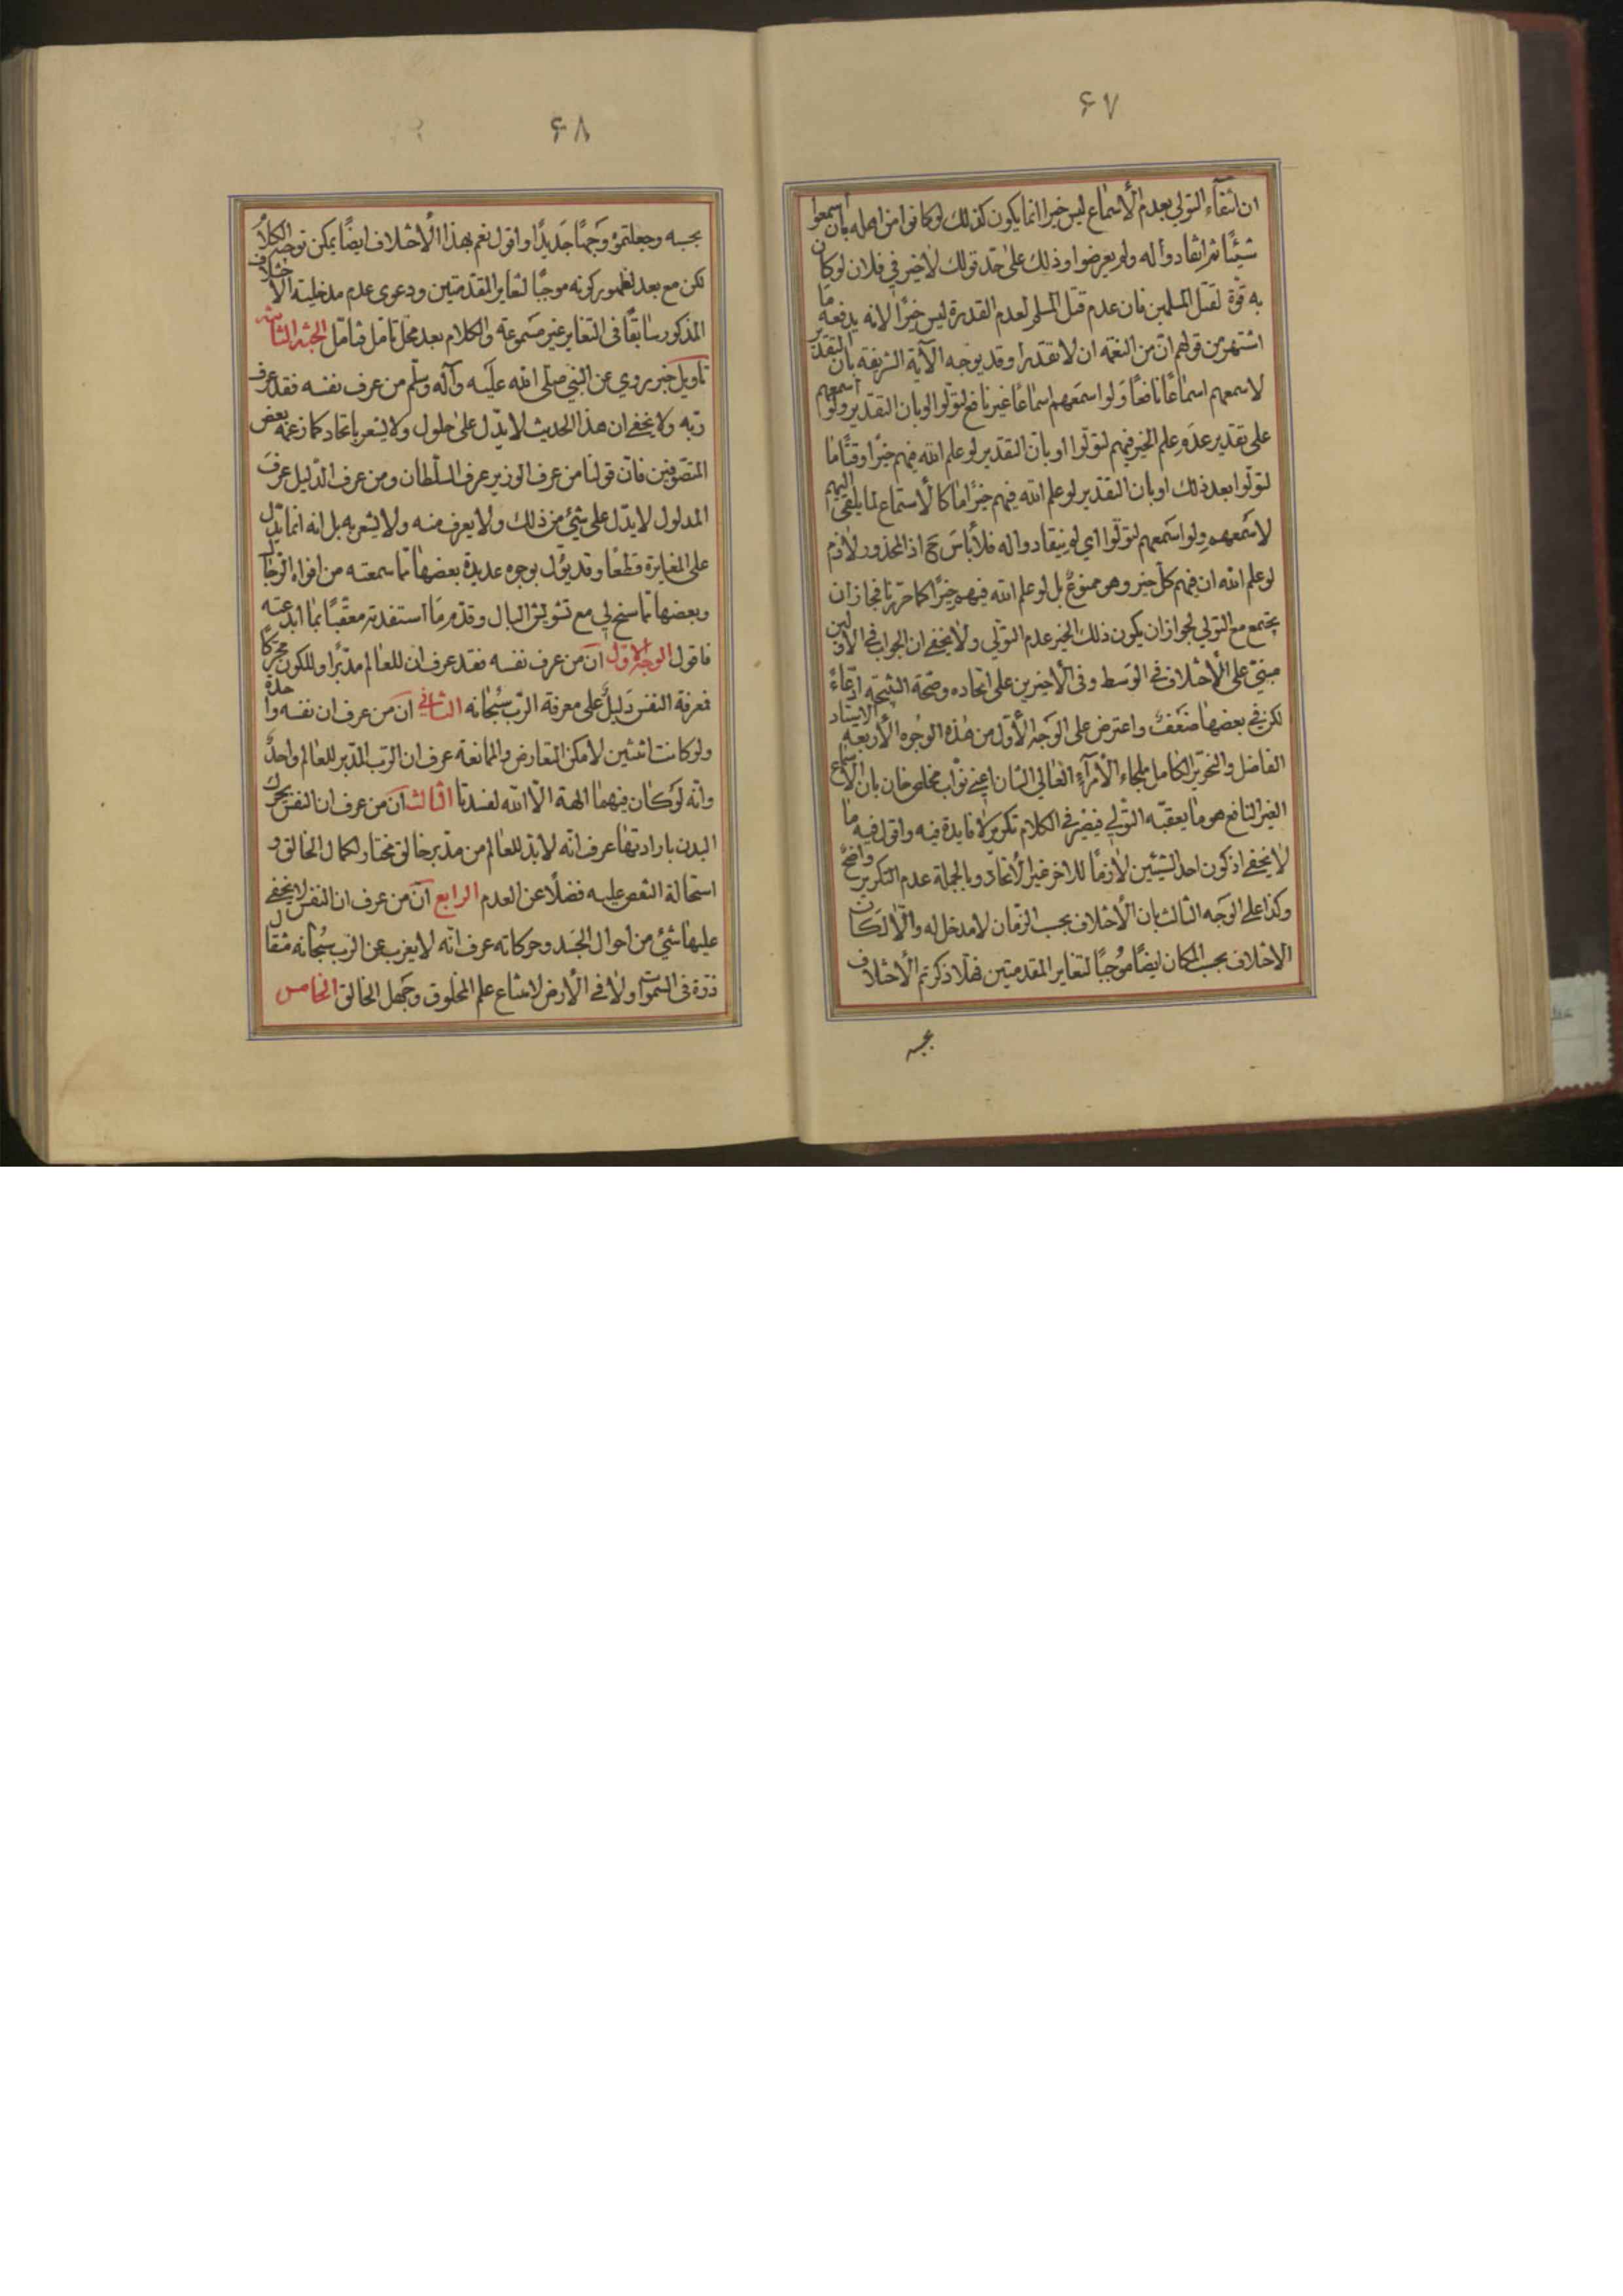 ۶۷
ان انتفاء التولي بعدم الأسماع ليس خيرا انما يكون كذلك لوكانوا من اهله بأن اسمعوا
شيئًا ثم انقادوا له ولم يعرضوا وذلك على حدّ قولك لاخير في فلان لوكان
به قوّة لقتل المسلمين فان عدم قتل المسلم لعدم القدرة ليس خيرًا الا انه يدفعه ما
اشتهر من قولهم انّ من النعمة ان لا تقدر وقد يوجه الآية الشريفة بأن التقدير
لاسمعهم اسماعًا نافعًا ولو اسمعهم اسماعًا غير نافع لتولوا او بان التقدير ولو اسمعهم
على تقدير عدم علم الخير فيهم لتولّوا او بانّ التقدير لو علم الله فيهم خيرًا وقتًا ما
لتولّوا بعد ذلك او بان التقدير لو علم الله فيهم خيرًا ما كالأستماع لما يلقى اليهم
لاسمعهم ولو اسمعهم لتولّوا اي لم ينقادوا له فلا بأس ح اذ المحذور لازم
لو علم الله ان فيهم كلّ خير وهو ممنوعٌ بل لو علم الله فيهم خيرًا كما حرّرنا فجاز ان
يجتمع مع التولي لجواز ان يكون ذلك الخير عدم التولّي ولا يخفى ان الجواب في الاولين
مبنيّ على الأختلاف في الوسط وفى الأخيرين على اتحاده وصحّة النتيجة ادّعاءً
لكن في بعضها ضعفٌ واعترض على الوجه الأوّل من هذه الوجوه الأربعة الاستاد
الفاضل والنحرير الكامل ملجاء الأمرآء العالي الشان اعني نوّاب مخلص خان بان الأسماع
الغير النافع هو ما يعقبه التولّي فيصير في الكلام تكرير لا فايدة فيه واقول فيه ما
لا يخفى اذ كون احد الشيئين لازمًا للاخر غير الأتحاد وبالجملة عدم التكرير واضحٌ
وكذا على الوجه الثالث بان الأختلاف بحسب الزمان لا مدخل له والّا لكان
الاختلاف بحسب المكان ايضًا موجبًا لتغاير المقدمتين فهلّا ذكرتم الأختلاف
بحسبه
۶۸
بحسبه وجعلتموه وجهًا جديدًا واقول نعم بهذا الأختلاف ايضًا يمكن توجيه الكلام
لكن مع بعد لظهور كونه موجبًا لتغاير المقدّمتين ودعوى عدم مدخلية الاختلاف
المذكور سابقًا في التغاير غير مسموعة والكلام بعد محلّ تأمل فتأمّل البحث الثامن
تأويل خبر روي عن النبي صلّى الله عليه وآله وسلّم من عرف نفسه فقد عرف
ربّه ولا يخفى ان هذا الحديث لا يدّل على حلول ولا يشعر باتحاد كما زعمه بعض
المتصوّفين فانّ قولنا من عرف الوزير عرف السلطان ومن عرف الدّليل عرف
المدلول لا يدّل على شئ من ذلك ولا يعرف منه ولا يشعر به بل انه انما يدّل
على المغايرة قطعًا وقد يؤل بوجوه عديدة بعضها مما سمعته من افواه الرجال
وبعضها مما سنح لي مع تشويش البال وقدّم ما استفدته معقّبًا بما ابدعته
فاقول الوجه الاول انّ من عرف نفسه فقد عرف ان للعالم مدبّرًا وللكون محرّكًا
فمعرفة النفس دليلٌ على معرفة الرّب سبحانه الثاني ان من عرف ان نفسه واحدة
ولو كانت اثنتين لامكن التعارض والممانعة عرف ان الرّب المدّبر للعالم واحدٌ
وانّه لو كان فيهما الهة الّا الله لفسدتا الثالث انّ من عرف ان النفس يحرّك
البدن بارادتها عرف انّه لا بدّ للعالم من مدّبر خالق مختار لكمال الخالق و
استحالة النقص عليه فضلًا عن العدم الرابع انّ من عرف ان النفس لا يخفى
عليها شئ من احوال الجسد وحركاته عرف انّه لا يعزب عن الرّب سبحانه مثقال
ذرّة فى السموات ولا في الأرض لامتناع علم المخلوق وجهل الخالق الخامس